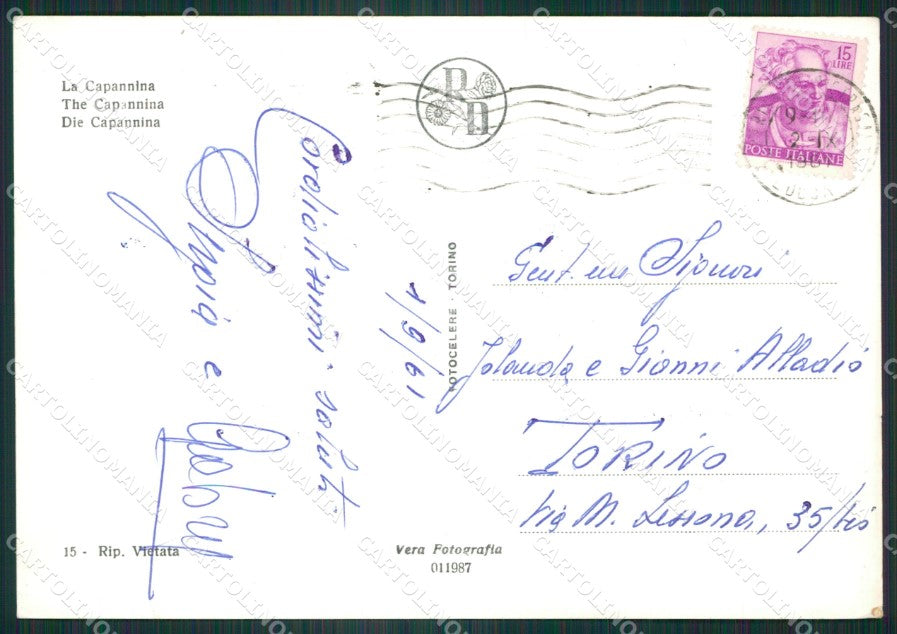 La Capannina
The Capannina
Die Capannina
RD
15
LIRE
POSTE ITALIANE
9-
2-IX
Cordialissimi saluti
e
1/9/61
FOTOCELERE · TORINO
Gent.mi Signori
Jolanda e Gianni Alladio
TORINO
Via M. Lessona, 35/bis
15 - Rip. Vietata
Vera Fotografia
011987
CARTOLINOMANIA